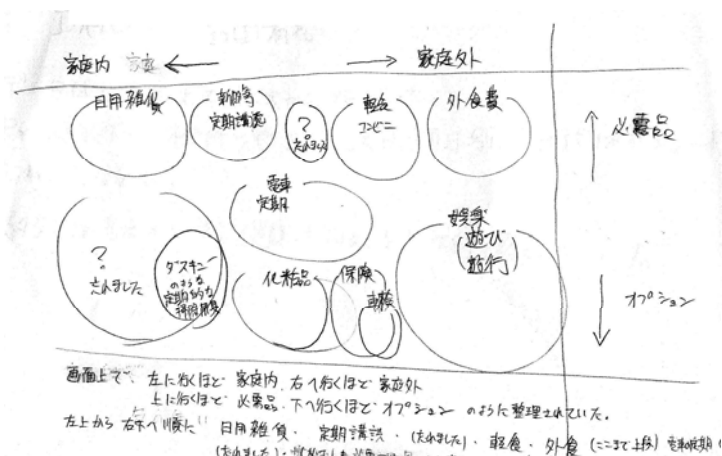 家庭内 家庭 ← → 家庭外
日用雑貨
新聞等
定期講読
?
忘れました
軽食
コンビニ
外食費
↑
必需品
電車
定期
?
忘れました
ダスキン
のような
定期的な
掃除
化粧品
保険
車検
娯楽
(遊び)
(旅行)
↓
オプション
画面上で、左に行くほど 家庭内、右へ行くほど 家庭外
上に行くほど 必需品、下へ行くほど オプション のように整理されていた。
左上から 右下へ順に
日用雑貨・定期講読・(忘れました)・軽食・外食 (ここまで上段)
(忘れました)・